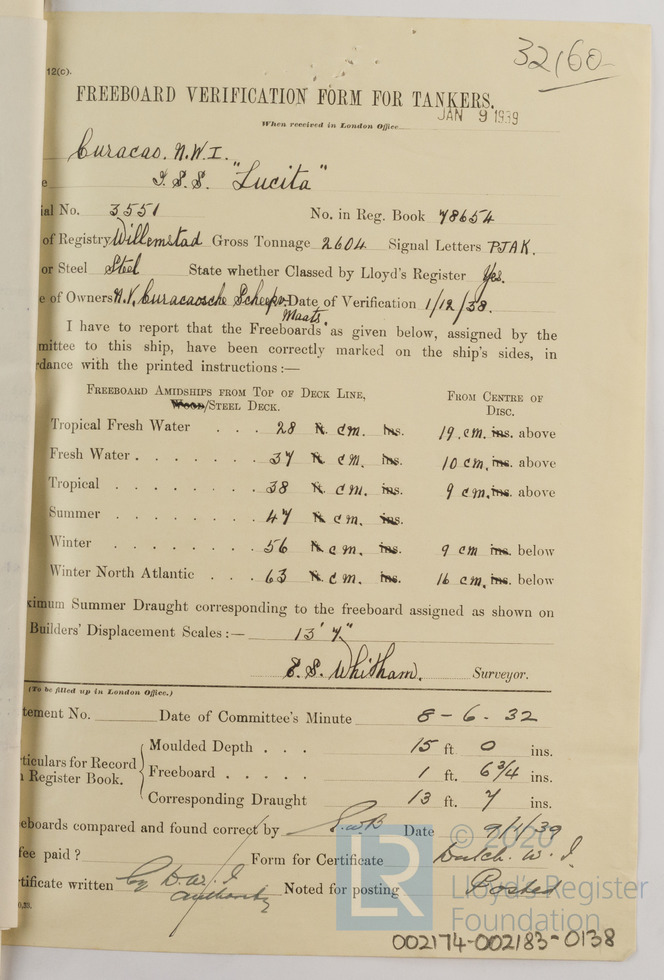 32160
12(c).
FREEBOARD VERIFICATION FORM FOR TANKERS.
When received in London Office JAN 9 1939
Curacao. N.W.I.
e T.S.S. "Lucita"
ial No. 3551 No. in Reg. Book 78654
of Registry Willemstad Gross Tonnage 2604 Signal Letters PJAK.
or Steel Steel State whether Classed by Lloyd's Register Yes.
e of Owners N.V. Curacaosche Scheepv. Maats. Date of Verification 1/12/38.
I have to report that the Freeboards as given below, assigned by the
mittee to this ship, have been correctly marked on the ship's sides, in
rdance with the printed instructions:—
FREEBOARD AMIDSHIPS FROM TOP OF DECK LINE, FROM CENTRE OF
WOOD/STEEL DECK. DISC.
Tropical Fresh Water . . . 28 ft. cm. ins. 19 . cm. ins. above
Fresh Water . . . . . . . 37 ft. cm. ins. 10 cm. ins. above
Tropical . . . . . . . . 38 ft. cm. ins. 9 cm. ins. above
Summer . . . . . . . . 47 ft. cm. ins.
Winter . . . . . . . . 56 ft. cm. ins. 9 cm ins. below
Winter North Atlantic . . . 63 ft. cm. ins. 16 cm. ins. below
ximum Summer Draught corresponding to the freeboard assigned as shown on
Builders' Displacement Scales:— 13' 7"
E. S. Whitham. Surveyor.
(To be filled up in London Office.)
tement No. Date of Committee's Minute 8-6-32
ticulars for Record
n Register Book.
Moulded Depth . . . 15 ft. 0 ins.
Freeboard . . . . . 1 ft. 6 3/4 ins.
Corresponding Draught 13 ft. 7 ins.
eboards compared and found correct by Date 9/1/39
fee paid ? Form for Certificate Dutch. W. I.
rtificate written by D.W.I authority Noted for posting Posted
0.33.
LR
© 2020
Lloyd's Register
Foundation
002174-002183-0138